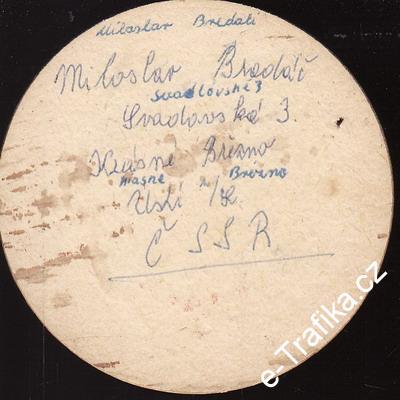 Miloslav Bredáč
Miloslav Bredáč
Svadlovské 3
Svádovská 3.
Krásné Březno
Krasne Brezno
Ústí n/L.
ČSSR
e-Trafika.cz